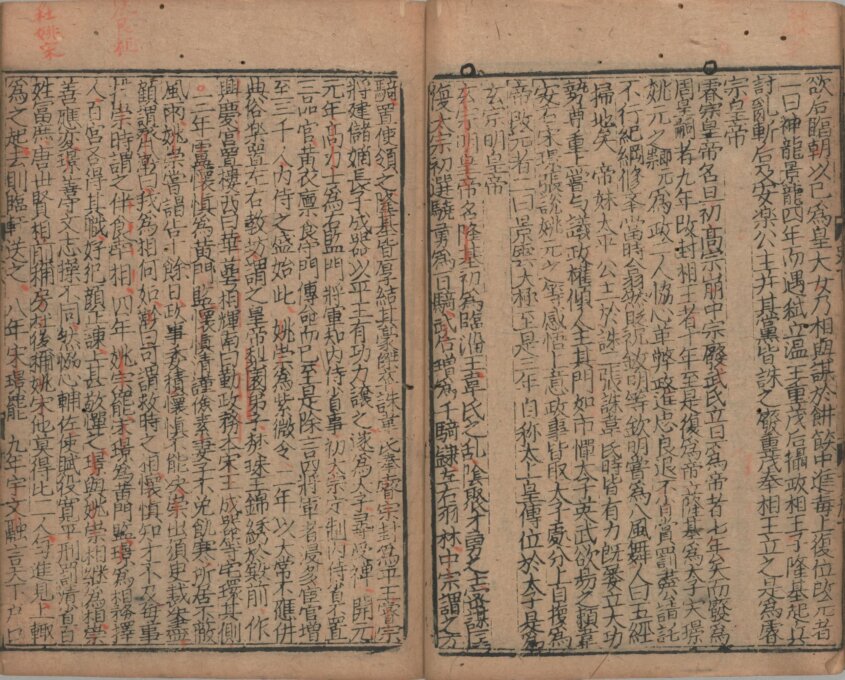 欲后臨朝以己為皇太女乃相與謀於餅餤中進毒上復位改元者
一曰神龍景龍四年而遇弑立温王重茂后攝政相王子隆基起兵
討乱斬后及安楽公主并其黨皆誅之廢重茂奉相王立之是為睿
宗皇帝
睿宗皇帝名旦初高宗崩中宗廢武氏立旦為帝者七年矣而廢為
周皇嗣者九年改封相王者十年至是復為帝立隆基為太子宋璟
姚元之為政二人協心革弊政進忠良退不肖賞罰盡公請託
不行紀綱修挙當時翕然貶祝欽明等欽明嘗為八風舞人曰五經
掃地矣 帝妹太平公主於誅二張誅韋氏時皆有力既屢立大功
勢尊重上嘗与議政權傾人主其門如市憚太子英武欲易之頼韋
安石宋璟張説姚元之等感悟上意政事皆取太子處分上自復為
帝改元者二曰景雲太極至是三年自称太上皇傳位於太子是為
玄宗明皇帝
玄宗明皇帝名隆基初為臨淄王韋氏之乱陰聚才勇之士謀匡
復太宗初選驍勇為百騎武后增為千騎隷左右羽林中宗謂之万
騎置使領之隆基皆厚結其豪傑誅韋氏奉睿宗封為平王睿宗
將建儲嫡長子成器以平王有功力譲之遂為太子尋受禅 開元
元年高力士為右監門將軍知内侍省事 初太宗定制内侍省不置
三品官黄衣稟食守門傳命而已至是除三品將軍者浸多宦官增
至三千人内侍之盛始此 姚崇為紫微令 二年以太常不應併
典俗楽置左右教坊謂之皇帝梨園弟子 焚珠玉錦綉於殿前 作
興慶宮置楼西曰華萼相輝南曰勤政務本宋王成器等宅環其側
二年盧懷慎為黄門監懷慎清謹儉素妻子不免飢寒所居不蔽
風雨姚崇嘗謁告十餘日政事委積懷慎不能决崇出須臾裁决盡
顧謂齊澣曰我為相何如澣曰可謂救時之相懷慎知才不及毎事
推崇時謂之伴食宰相 四年姚崇罷宋璟為黄門監璟為相務擇
人百官各得其職好犯顔正諫上甚敬憚之璟與姚崇相継為相崇
善應変璟善守文志操不同然協心輔佐使賦役寛平刑罰清省百
姓富庶唐世賢相前稱房杜後稱姚宋他莫得比二人毎進見上輒
為之起去則臨軒送之 八年宋璟罷 九年宇文融言天下戸口
杜姚宋